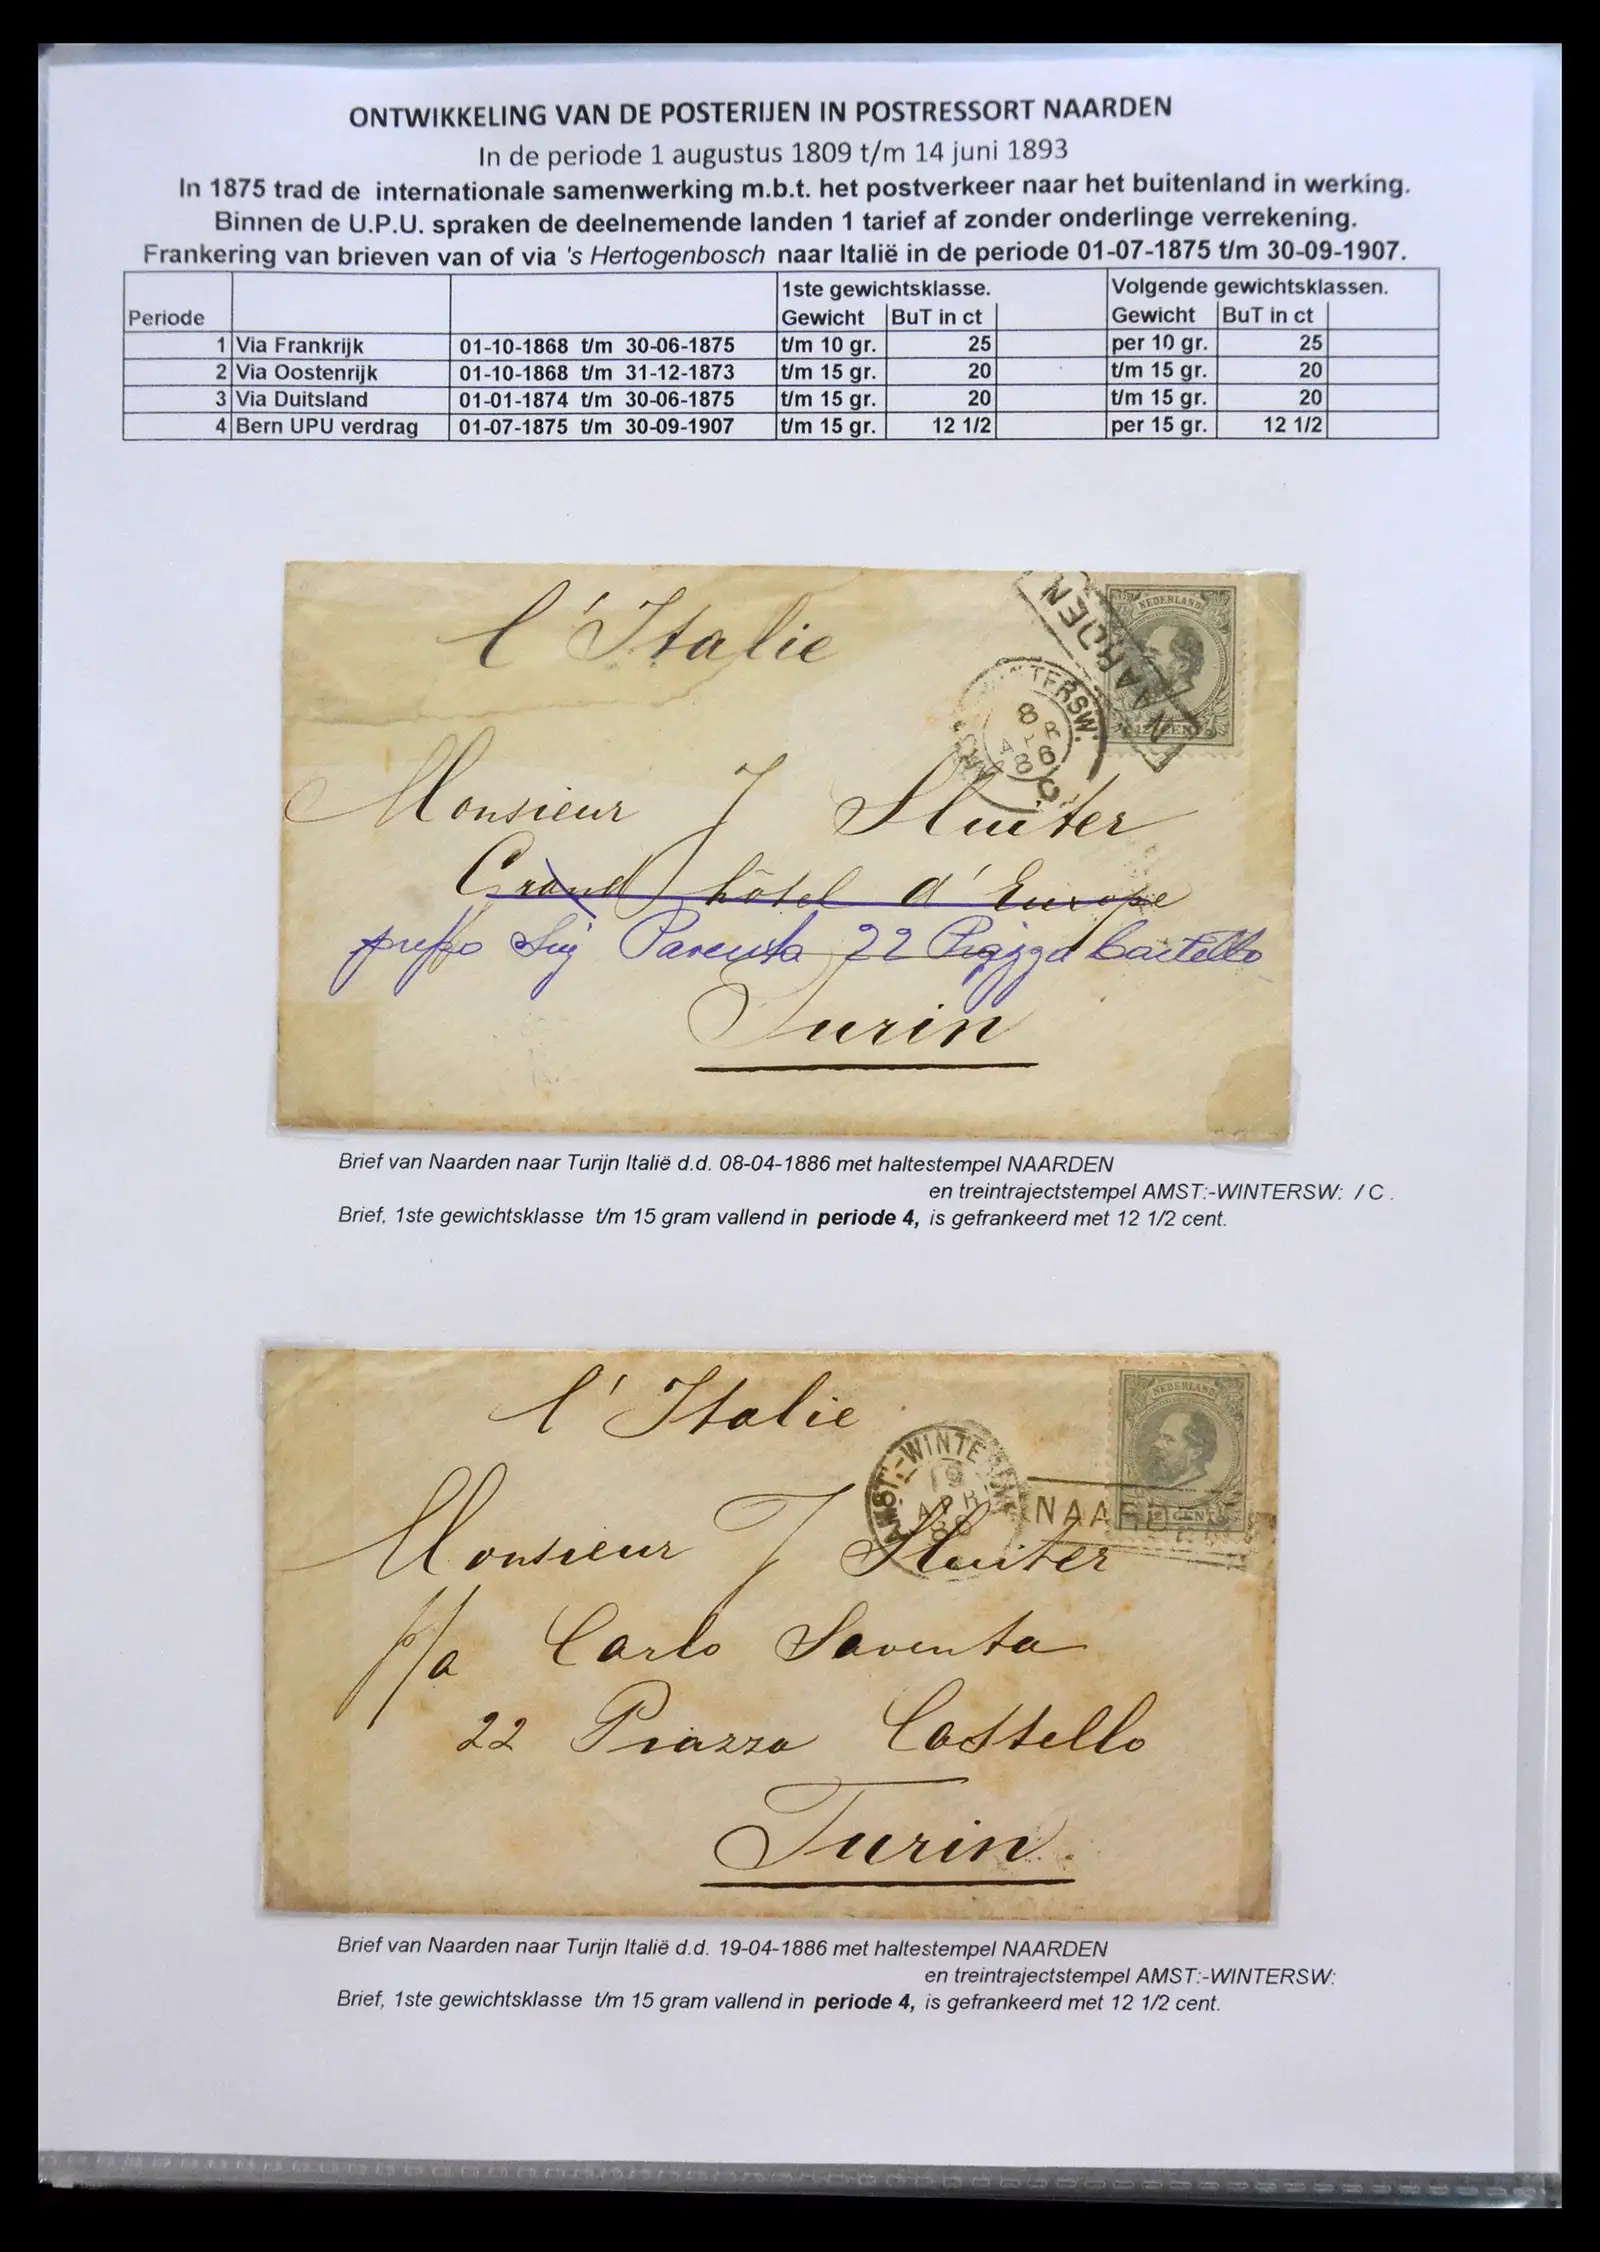 ONTWIKKELING VAN DE POSTERIJEN IN POSTRESSORT NAARDEN
In de periode 1 augustus 1809 t/m 14 juni 1893
In 1875 trad de internationale samenwerking m.b.t. het postverkeer naar het buitenland in werking.
Binnen de U.P.U. spraken de deelnemende landen 1 tarief af zonder onderlinge verrekening.
Frankering van brieven van of via 's Hertogenbosch naar Italië in de periode 01-07-1875 t/m 30-09-1907.
1ste gewichtsklasse. Volgende gewichtsklassen.
Periode Gewicht BuT in ct Gewicht BuT in ct
1 Via Frankrijk 01-10-1868 t/m 30-06-1875 t/m 10 gr. 25 per 10 gr. 25
2 Via Oostenrijk 01-10-1868 t/m 31-12-1873 t/m 15 gr. 20 t/m 15 gr. 20
3 Via Duitsland 01-01-1874 t/m 30-06-1875 t/m 15 gr. 20 t/m 15 gr. 20
4 Bern UPU verdrag 01-07-1875 t/m 30-09-1907 t/m 15 gr. 12 1/2 per 15 gr. 12 1/2
l'Italie
NEDERLAND
NAARDEN
WINTERSW:
8
86
C
Monsieur J Sluiter
Grand hôtel d'Europe
22 Piazza Castello
Turin
Brief van Naarden naar Turijn Italië d.d. 08-04-1886 met haltestempel NAARDEN
en treintrajectstempel AMST:-WINTERSW: / C .
Brief, 1ste gewichtsklasse t/m 15 gram vallend in periode 4, is gefrankeerd met 12 1/2 cent.
l'Italie
NEDERLAND
CENT
AMST:-WINTERSW:
19
APR
NAARDEN
Monsieur J Sluiter
p/a Carlo Saventa
22 Piazza Castello
Turin.
Brief van Naarden naar Turijn Italië d.d. 19-04-1886 met haltestempel NAARDEN
en treintrajectstempel AMST:-WINTERSW:
Brief, 1ste gewichtsklasse t/m 15 gram vallend in periode 4, is gefrankeerd met 12 1/2 cent.